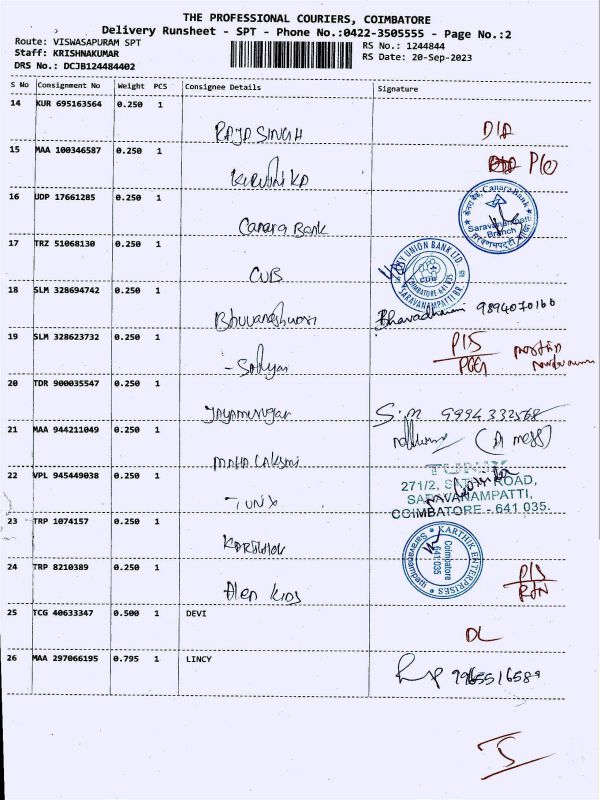 THE PROFESSIONAL COURIERS, COIMBATORE
Delivery Runsheet - SPT - Phone No.:0422-3505555 - Page No.:2
Route: VISWASAPURAM SPT
RS No.: 1244844
Staff: KRISHNAKUMAR
RS Date: 20-Sep-2023
DRS No.: DCJB124484402
S No Consignment No Weight PCS Consignee Details Signature
14 KUR 695163564 0.250 1
RAJA SINGH
15 MAA 100346587 0.250 1
P/O
16 UDP 17661285 0.250 1
Canara Bank
Canara Bank
Saravanampatti
Branch
17 TRZ 51068130 0.250 1
CUB
CITY UNION BANK LTD.
CUB
COIMBATORE-641 035
SARAVANAMPATTI BR.
18 SLM 328694742 0.250 1
Bhuvaneshwari
Bharadharani 9894070160
19 SLM 328623732 0.250 1
P/S
20 TDR 900035547 0.250 1
Jayamurugan
S.m 9994332568
21 MAA 944211049 0.250 1
(A mess)
MAHA LAKSMI
22 VPL 945449038 0.250 1
TUNIX
TUNIX
271/2, ROAD,
SARAVANAMPATTI,
COIMBATORE - 641 035.
23 TRP 1074157 0.250 1
KARTHIK ENTERPRISES
Coimbatore
641 035
Saravanampatti
24 TRP 8210389 0.250 1
Kids
P/S
25 TCG 40633347 0.500 1 DEVI
DL
26 MAA 297066195 0.795 1 LINCY